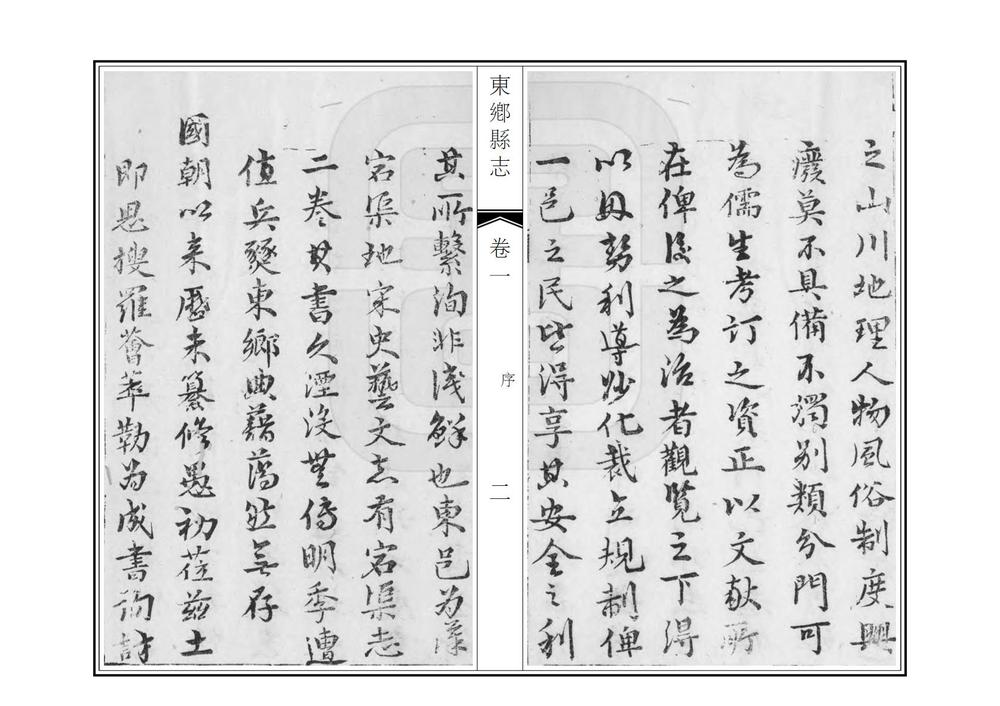 之山川地理人物風俗制度興
廢莫不具備不獨別類分門可
為儒生考訂之資正以文獻所
在俾後之為治者觀覽之下得
以因勢利導妙化裁立規制俾
一邑之民皆得享其安全之利
東鄉縣志
卷一
序
二
其所繫洵非淺鮮也東邑為漢
宕渠地宋史藝文志有宕渠志
二卷其書久湮沒無傳明季遭
值兵燹東鄉典藉蕩然無存
國朝以來歷未纂修愚初莅茲土
即思搜羅薈萃勒為成書詢